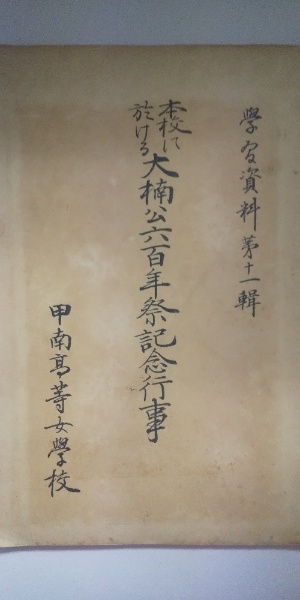 學習資料第十一輯
本校に
於ける
大楠公六百年祭記念行事
甲南高等女學校